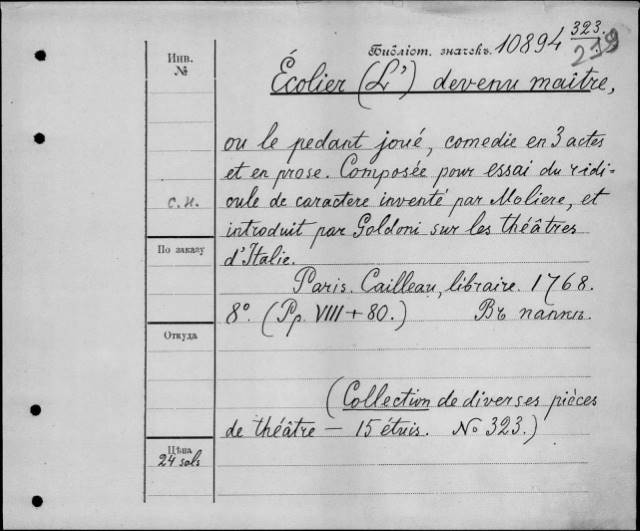 Библіот. значекъ. 10894 323.
219
Инв.
№
Écolier (L') devenu maitre,
ou le pedant joué, comedie en 3 actes
et en prose. Composée pour essai du ridi-
cule de caractere inventé par Moliere, et
с.н.
introduit par Goldoni sur les théâtres
По заказу
d'Italie.
Paris. Cailleau, libraire. 1768.
8°. (Pp. VIII + 80.) Въ папкѣ.
Откуда
(Collection de diverses pièces
de théâtre — 15 étuis. No 323.)
Цѣна
24 sols